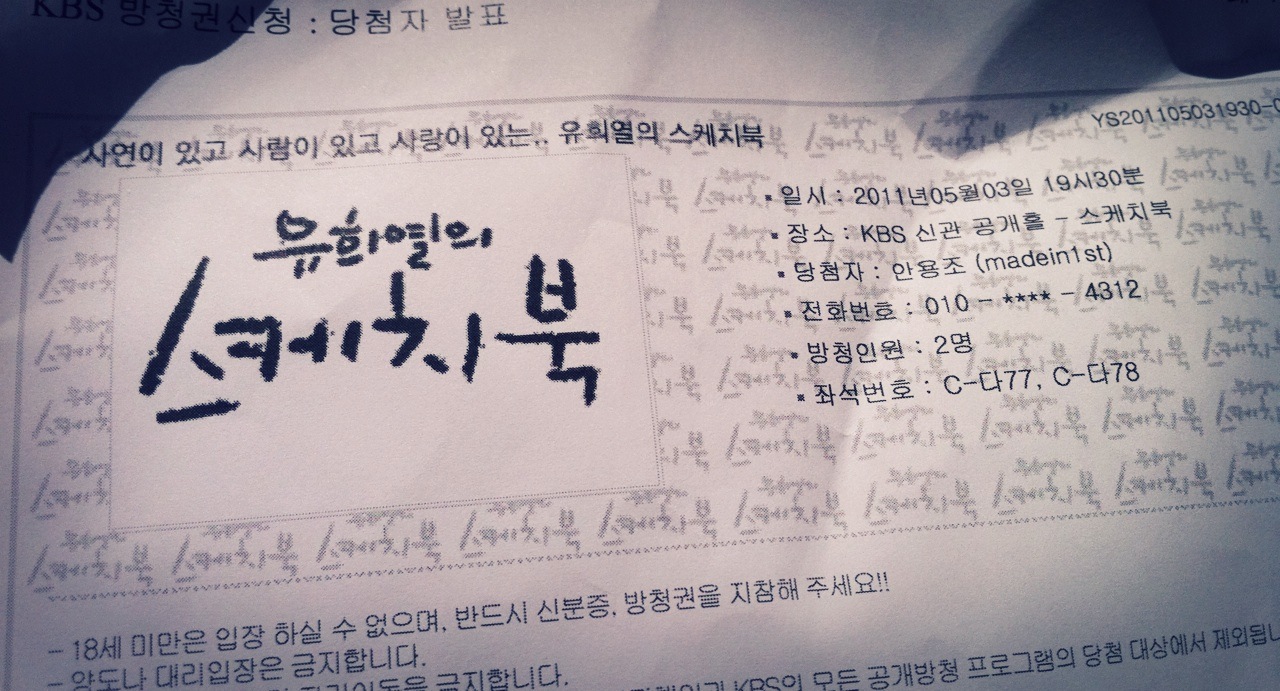 KBS 방청권신청 : 당첨자 발표
YS201105031930-0
사연이 있고 사람이 있고 사랑이 있는.. 유희열의 스케치북
유희열의
스케치북
▪ 일시 : 2011년05월03일 19시30분
▪ 장소 : KBS 신관 공개홀 - 스케치북
▪ 당첨자 : 안용조 (madein1st)
▪ 전화번호 : 010 - **** - 4312
▪ 방청인원 : 2명
▪ 좌석번호 : C-다77, C-다78
- 18세 미만은 입장 하실 수 없으며, 반드시 신분증, 방청권을 지참해 주세요!!
- 양도나 대리입장은 금지합니다.
금지합니다.
KBS의 모든 공개방청 프로그램의 당첨 대상에서 제외됩니